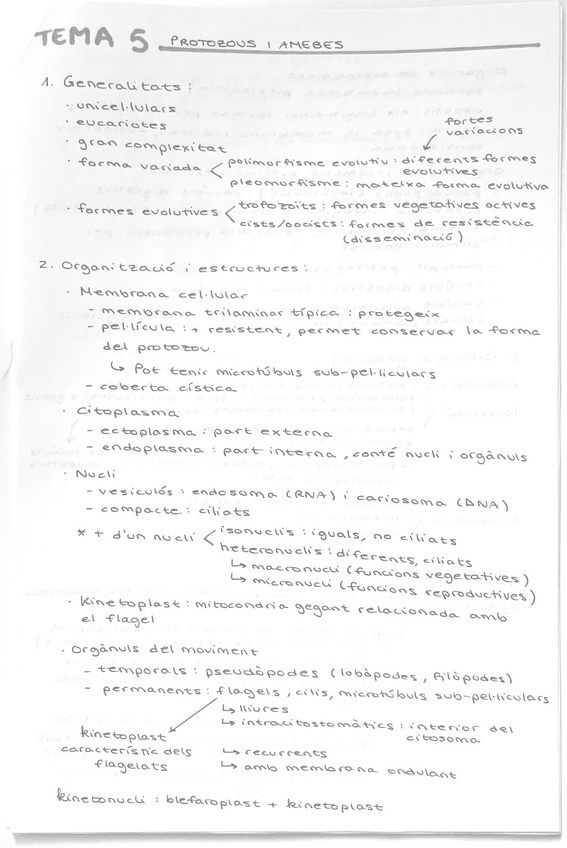 TEMA 5 PROTOZOUS I AMEBES
1. Generalitats :
· unicel·lulars
· eucariotes
· gran complexitat
fortes
variacions
· forma variada < polimorfisme evolutiu : diferents formes
evolutives
pleomorfisme : mateixa forma evolutiva
· formes evolutives < trofozoïts : formes vegetatives actives
cists/oocists : formes de resistència
(disseminació)
2. Organització i estructures :
· Membrana cel·lular
- membrana trilaminar típica : protegeix
- pel·lícula : + resistent, permet conservar la forma
del protozou.
↳ Pot tenir microtúbuls sub-pel·liculars
- coberta cística
· Citoplasma
- ectoplasma : part externa
- endoplasma : part interna, conté nucli i orgànuls
· Nucli
- vesiculós : endosoma (RNA) i cariosoma (DNA)
- compacte : ciliats
* + d'un nucli < isonuclis : iguals, no ciliats
heteronuclis : diferents, ciliats
↳ macronucli (funcions vegetatives)
↳ micronucli (funcions reproductives)
· Kinetoplast : mitocondria gegant relacionada amb
el flagel
· Orgànuls del moviment
- temporals : pseudòpodes (lobòpodes, filòpudes)
- permanents : flagels, cilis, microtúbuls sub-pel·liculars
↳ lliures
↳ intracitostomàtics : interior del
citosoma
kinetoplast
característic dels
flagelats
↳ recurrents
↳ amb membrana ondulant
kinetonucli : blefaroplast + kinetoplast